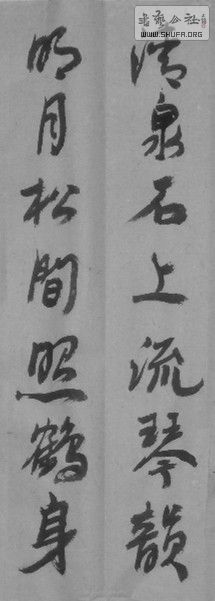 清泉石上流琴韻
明月松間照鶴身
書藝公社
WWW.SHUFA.ORG